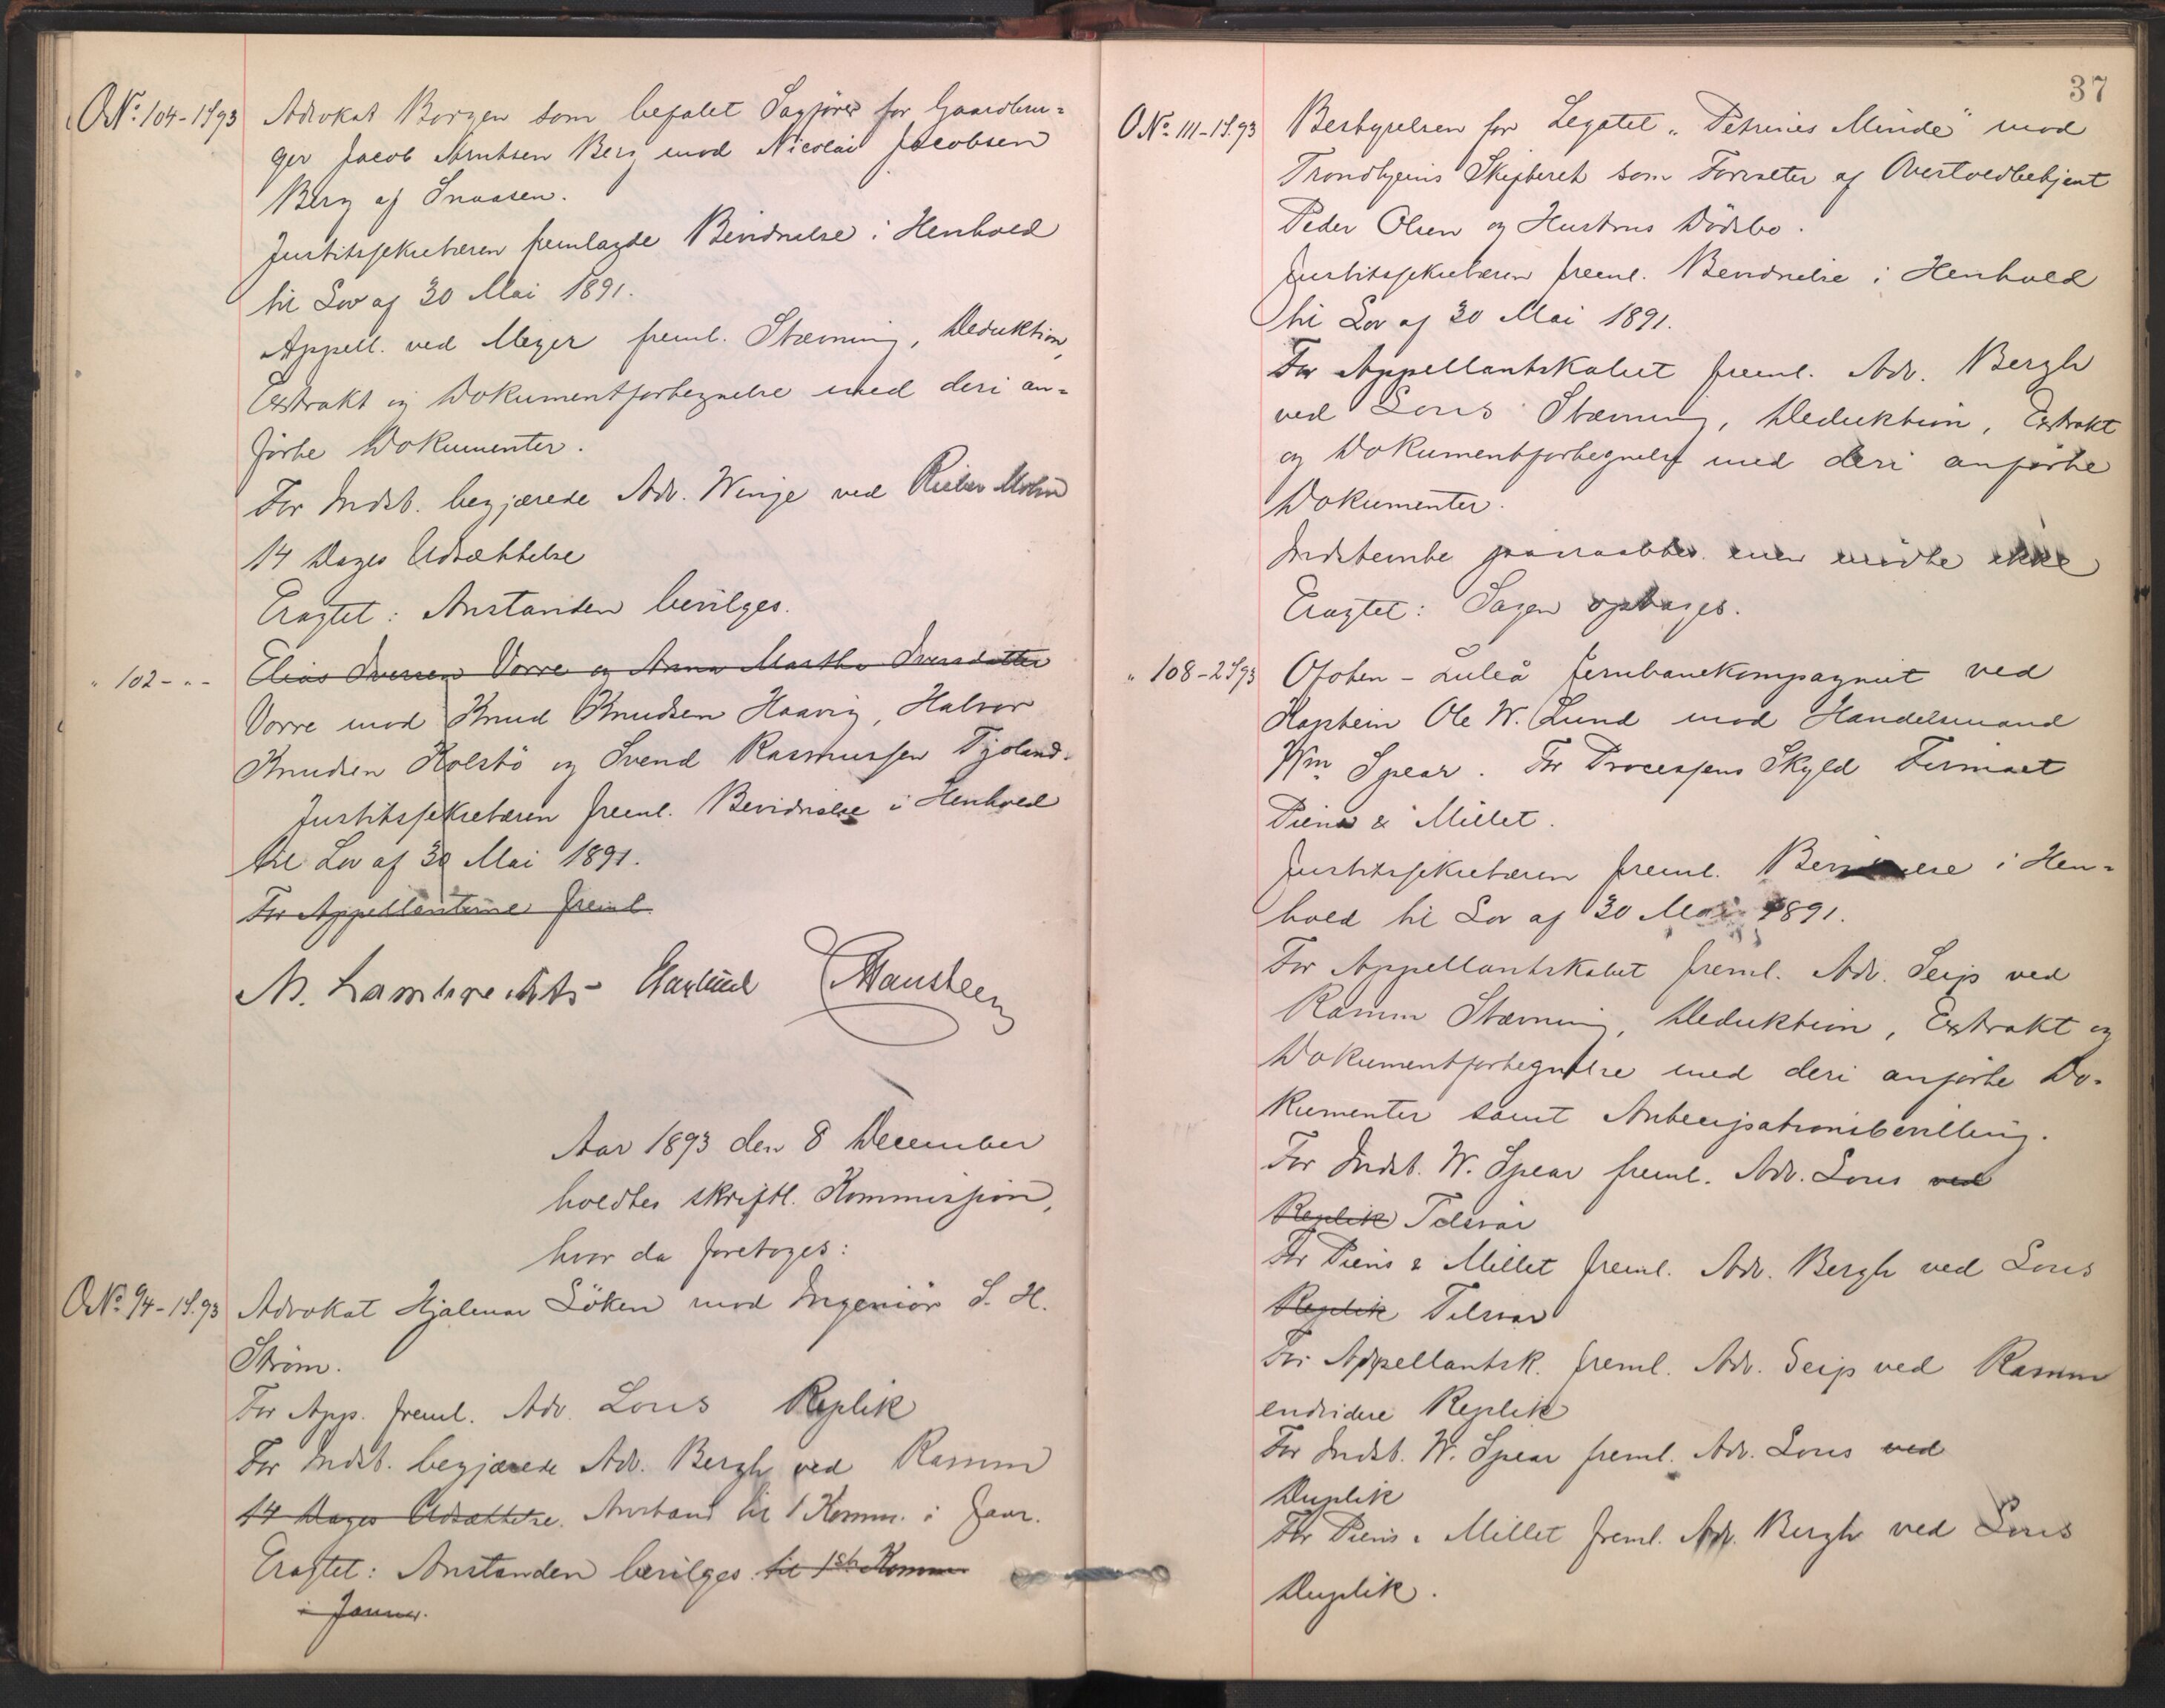 O.Nº 104-1S93 Advokat Borgen som befalet Sagfører for Gaardbru=
ger Jacob Arntsen Berg mod Nicolai Jacobsen
Berg af Snaasen.
Justitssekretæren fremlagde Bevidnelse i Henhold
til Lov af 30 Mai 1891.
Appell. ved Meyer freml. Stævning, Deduktion,
Extrakt og Dokumentfortegnelse med deri an=
førte Dokumenter.
For Indst. begjærede Adv. Winge ved Rieber Mohn
14 Dages Udsættelse
Eragtet: Anstanden bevilges.
" 102 - " - Elias Iversen Vorre og Anna Martha Iversdatter
Vorre mod Knud Knudsen Haavig, Halvor
Knudsen Kolstø og Svend Rasmussen Tjoland.
Justitssekretæren freml. Bevidnelse i Henhold
til Lov af 30 Mai 1891.
For Appellanterne freml.
M. Lambrechts Hansteen
Aar 1893 den 8 December
holdtes skriftl. Kommission,
hvor da foretoges:
O.Nº 94-1S.93 Advokat Hjalmar Löken mod Ingeniør S. H.
Strøm.
For App. freml. Adv. Lous Replik
For Indst. begjærede Adv. Bergh ved Ramm
14 Dages Udsættelse. Anstand til 1 Komm. i Janr.
Eragtet: Anstanden bevilges til 1ste Komm
i Januar.
37
O.Nº 111-1S.93 Bestyrelsen for Legatet "Petrines Minde" mod
Trondhjems Skifteret som Forvalter af Overtoldbetjent
Peder Olsen og Hustrus Dødsbo.
Justitssekretæren freml. Bevidnelse i Henhold
til Lov af 30 Mai 1891.
For Appellantskabet freml. Adv. Bergh
ved Lous Stævning, Deduktion, Extrakt
og Dokumentfortegnelse med deri anførte
Dokumenter.
Indstevnte paaraabtes men mødte ikke
Eragtet: Sagen optages.
" 108-2S93 Ofoten-Luleå Jernbanekompagniet ved
Kaptein Ole W. Lund mod Handelsmand
Wm Spear. For Processens Skyld Firmaet
Piens & Millet.
Justitssekretæren freml. Bevidnelse i Hen=
hold til Lov af 30 Mai 1891.
For Appellantskabet freml. Adv. Seip ved
Ramm Stævning, Deduktion, Extrakt og
Dokumentfortegnelse med deri anførte Do=
kumenter samt Anticipationsbevilling.
For Indst. W. Spear freml. Adv. Lous ved
Replik Tilsvar
For Piens & Millet freml. Adv. Bergh ved Lous
Replik Tilsvar
For Appellantsk. freml. Adv. Seip ved Ramm
endvidere Replik
For Indst. W. Spear freml. Adv. Lous ved
Duplik
For Piens & Millet freml. Adv. Bergh ved Lous
Duplik.